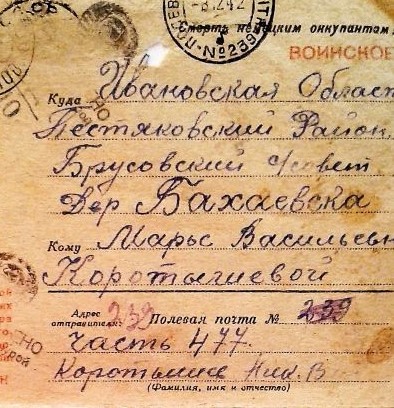 -8.2.42
№239
Смерть немецким оккупантам
ВОИНСКОЕ
Куда Ивановская Област
Пестяковский Район
Брусовский с/совет
Дер Бахаевска
Кому Марье Васильевн
Коротышевой
Адрес отправителя: 239 Полевая почта № 239
часть 477.
Коротышев Ник. В
(Фамилия, имя и отчество)